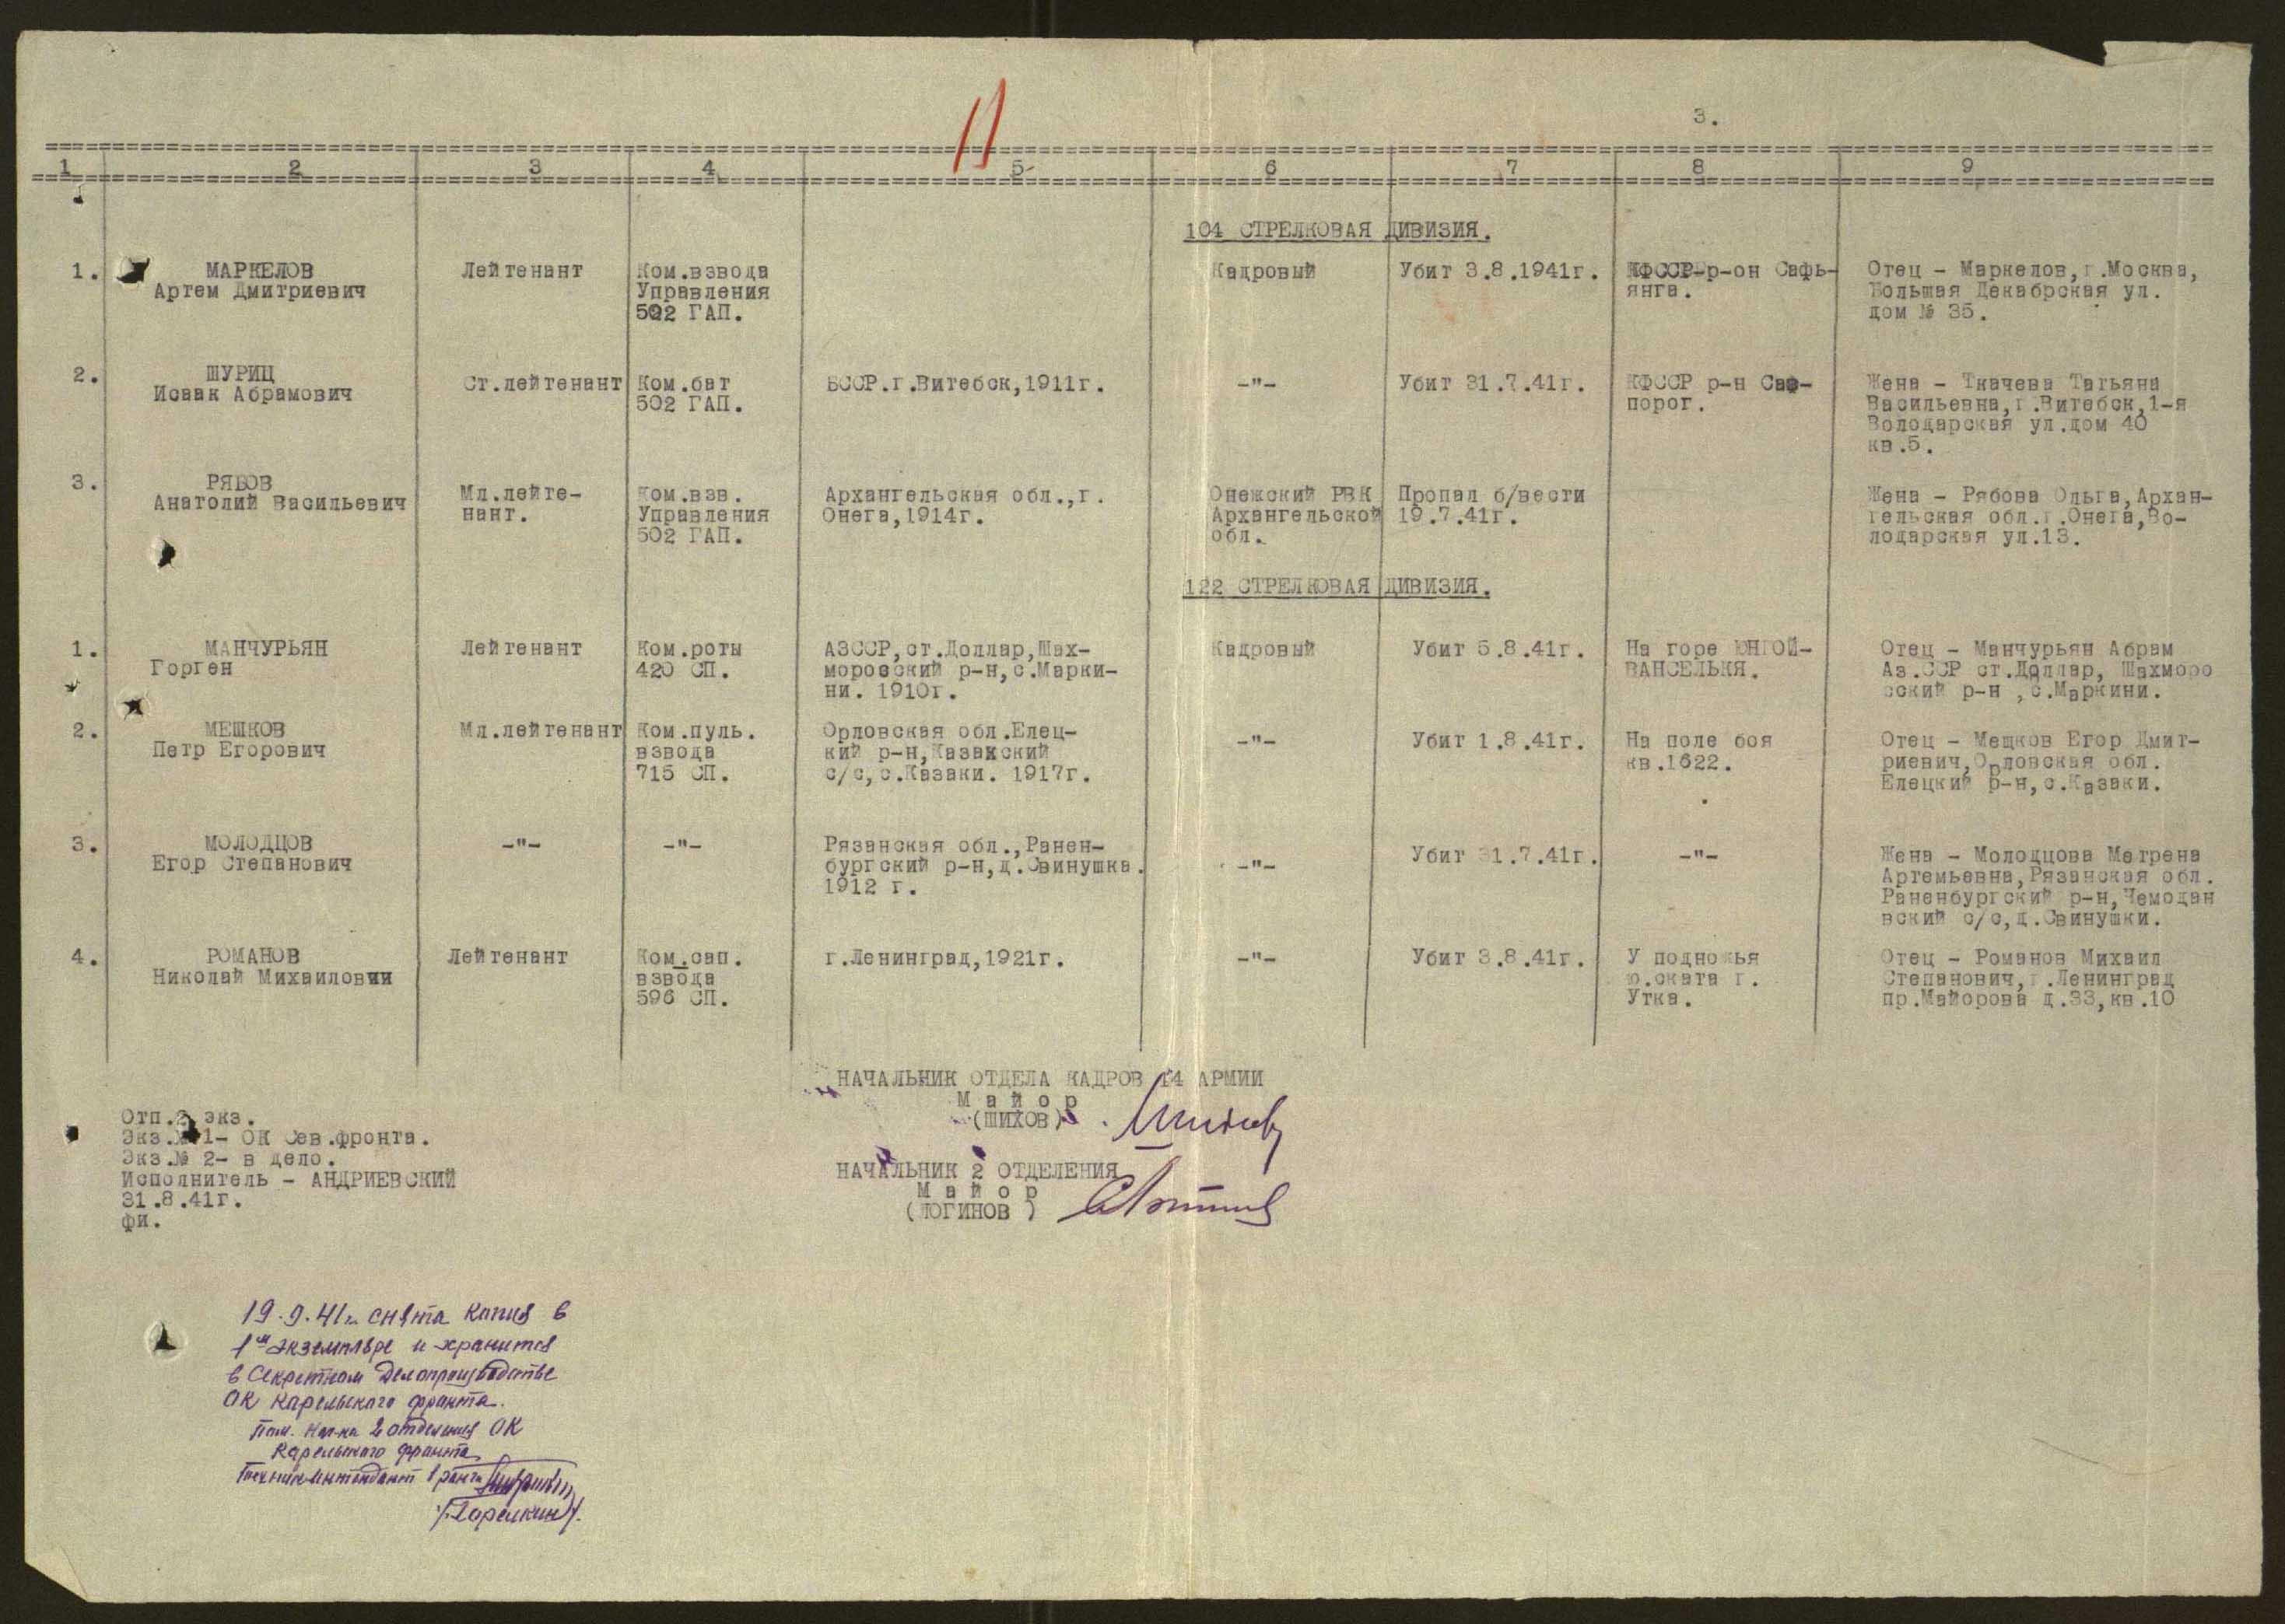 11
3.
1 2 3 4 5 6 7 8 9
104 СТРЕЛКОВАЯ ДИВИЗИЯ.
1. МАРКЕЛОВ
Артем Дмитриевич
Лейтенант
Ком.взвода
Управления
502 ГАП.
Кадровый
Убит 3.8.1941г.
КФССР-р-он Сафь-
янга.
Отец - Маркелов,г.Москва,
Большая Декабрская ул.
дом № 35.
2. ШУРИЦ
Исаак Абрамович
Ст.лейтенант
Ком.бат
502 ГАП.
БССР.г.Витебск,1911г.
-"-
Убит 31.7.41г.
КФССР р-н Саф-
порог.
Жена - Ткачева Татьяна
Васильевна,г.Витебск,1-я
Володарская ул.дом 40
кв.5.
3. РЯБОВ
Анатолий Васильевич
Мл.лейте-
нант.
Ком.взв.
Управления
502 ГАП.
Архангельская обл.,г.
Онега,1914г.
Онежский РВК
Архангельской
обл.
Пропал б/вести
19.7.41г.
Жена - Рябова Ольга,Архан-
гельская обл.г.Онега,Во-
лодарская ул.13.
122 СТРЕЛКОВАЯ ДИВИЗИЯ.
1. МАНЧУРЬЯН
Горген
Лейтенант
Ком.роты
420 СП.
АЗССР,ст.Доллар,Шах-
моровский р-н,с.Марки-
ни. 1910г.
Кадровый
Убит 5.8.41г.
На горе ЮНГОЙ-
ВАНСЕЛЬКЯ.
Отец - Манчурьян Абрам
Аз.ССР ст.Доллар, Шахморо
вский р-н ,с.Маркини.
2. МЕШКОВ
Петр Егорович
Мл.лейтенант
Ком.пуль.
взвода
715 СП.
Орловская обл.Елец-
кий р-н,Казакский
с/с,с.Казаки. 1917г.
-"-
Убит 1.8.41г.
На поле боя
кв.1622.
Отец - Мешков Егор Дмит-
риевич,Орловская обл.
Елецкий р-н,с.Казаки.
3. МОЛОДЦОВ
Егор Степанович
-"-
-"-
Рязанская обл.,Ранен-
бургский р-н,д.Свинушка.
1912 г.
-"-
Убит 31.7.41г.
-"-
Жена - Молодцова Матрена
Артемьевна,Рязанская обл.
Раненбургский р-н,Чемодан
вский с/с,д.Свинушки.
4. РОМАНОВ
Николай Михаилович
Лейтенант
Ком.сап.
взвода
596 СП.
г.Ленинград,1921г.
-"-
Убит 3.8.41г.
У подножья
ю.ската г.
Утка.
Отец - Романов Михаил
Степанович,г.Ленинград
пр.Майорова д.33,кв.10
НАЧАЛЬНИК ОТДЕЛА КАДРОВ 14 АРМИИ
М а й о р
(ШИХОВ)
НАЧАЛЬНИК 2 ОТДЕЛЕНИЯ
М а й о р
(ЛОГИНОВ )
Отп.2 экз.
Экз.№ 1- ОК Сев.фронта.
Экз.№ 2- в дело.
Исполнитель - АНДРИЕВСКИЙ
31.8.41г.
фи.
19.9.41г. снята копия в
1м экземпляре и хранится
в Секретном Делопроизводстве
ОК Карельского фронта.
Пом. Нач-ка 2 отделения ОК
Карельского фронта
Техник-интендант 1 ранга